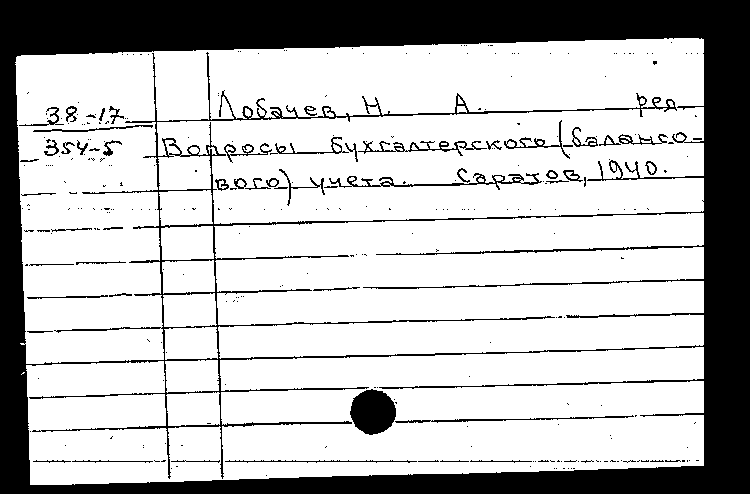 38-17 Лобачев, Н. А. ред.
354-5 Вопросы бухгалтерского (балансо-
вого) учета. Саратов, 1940.